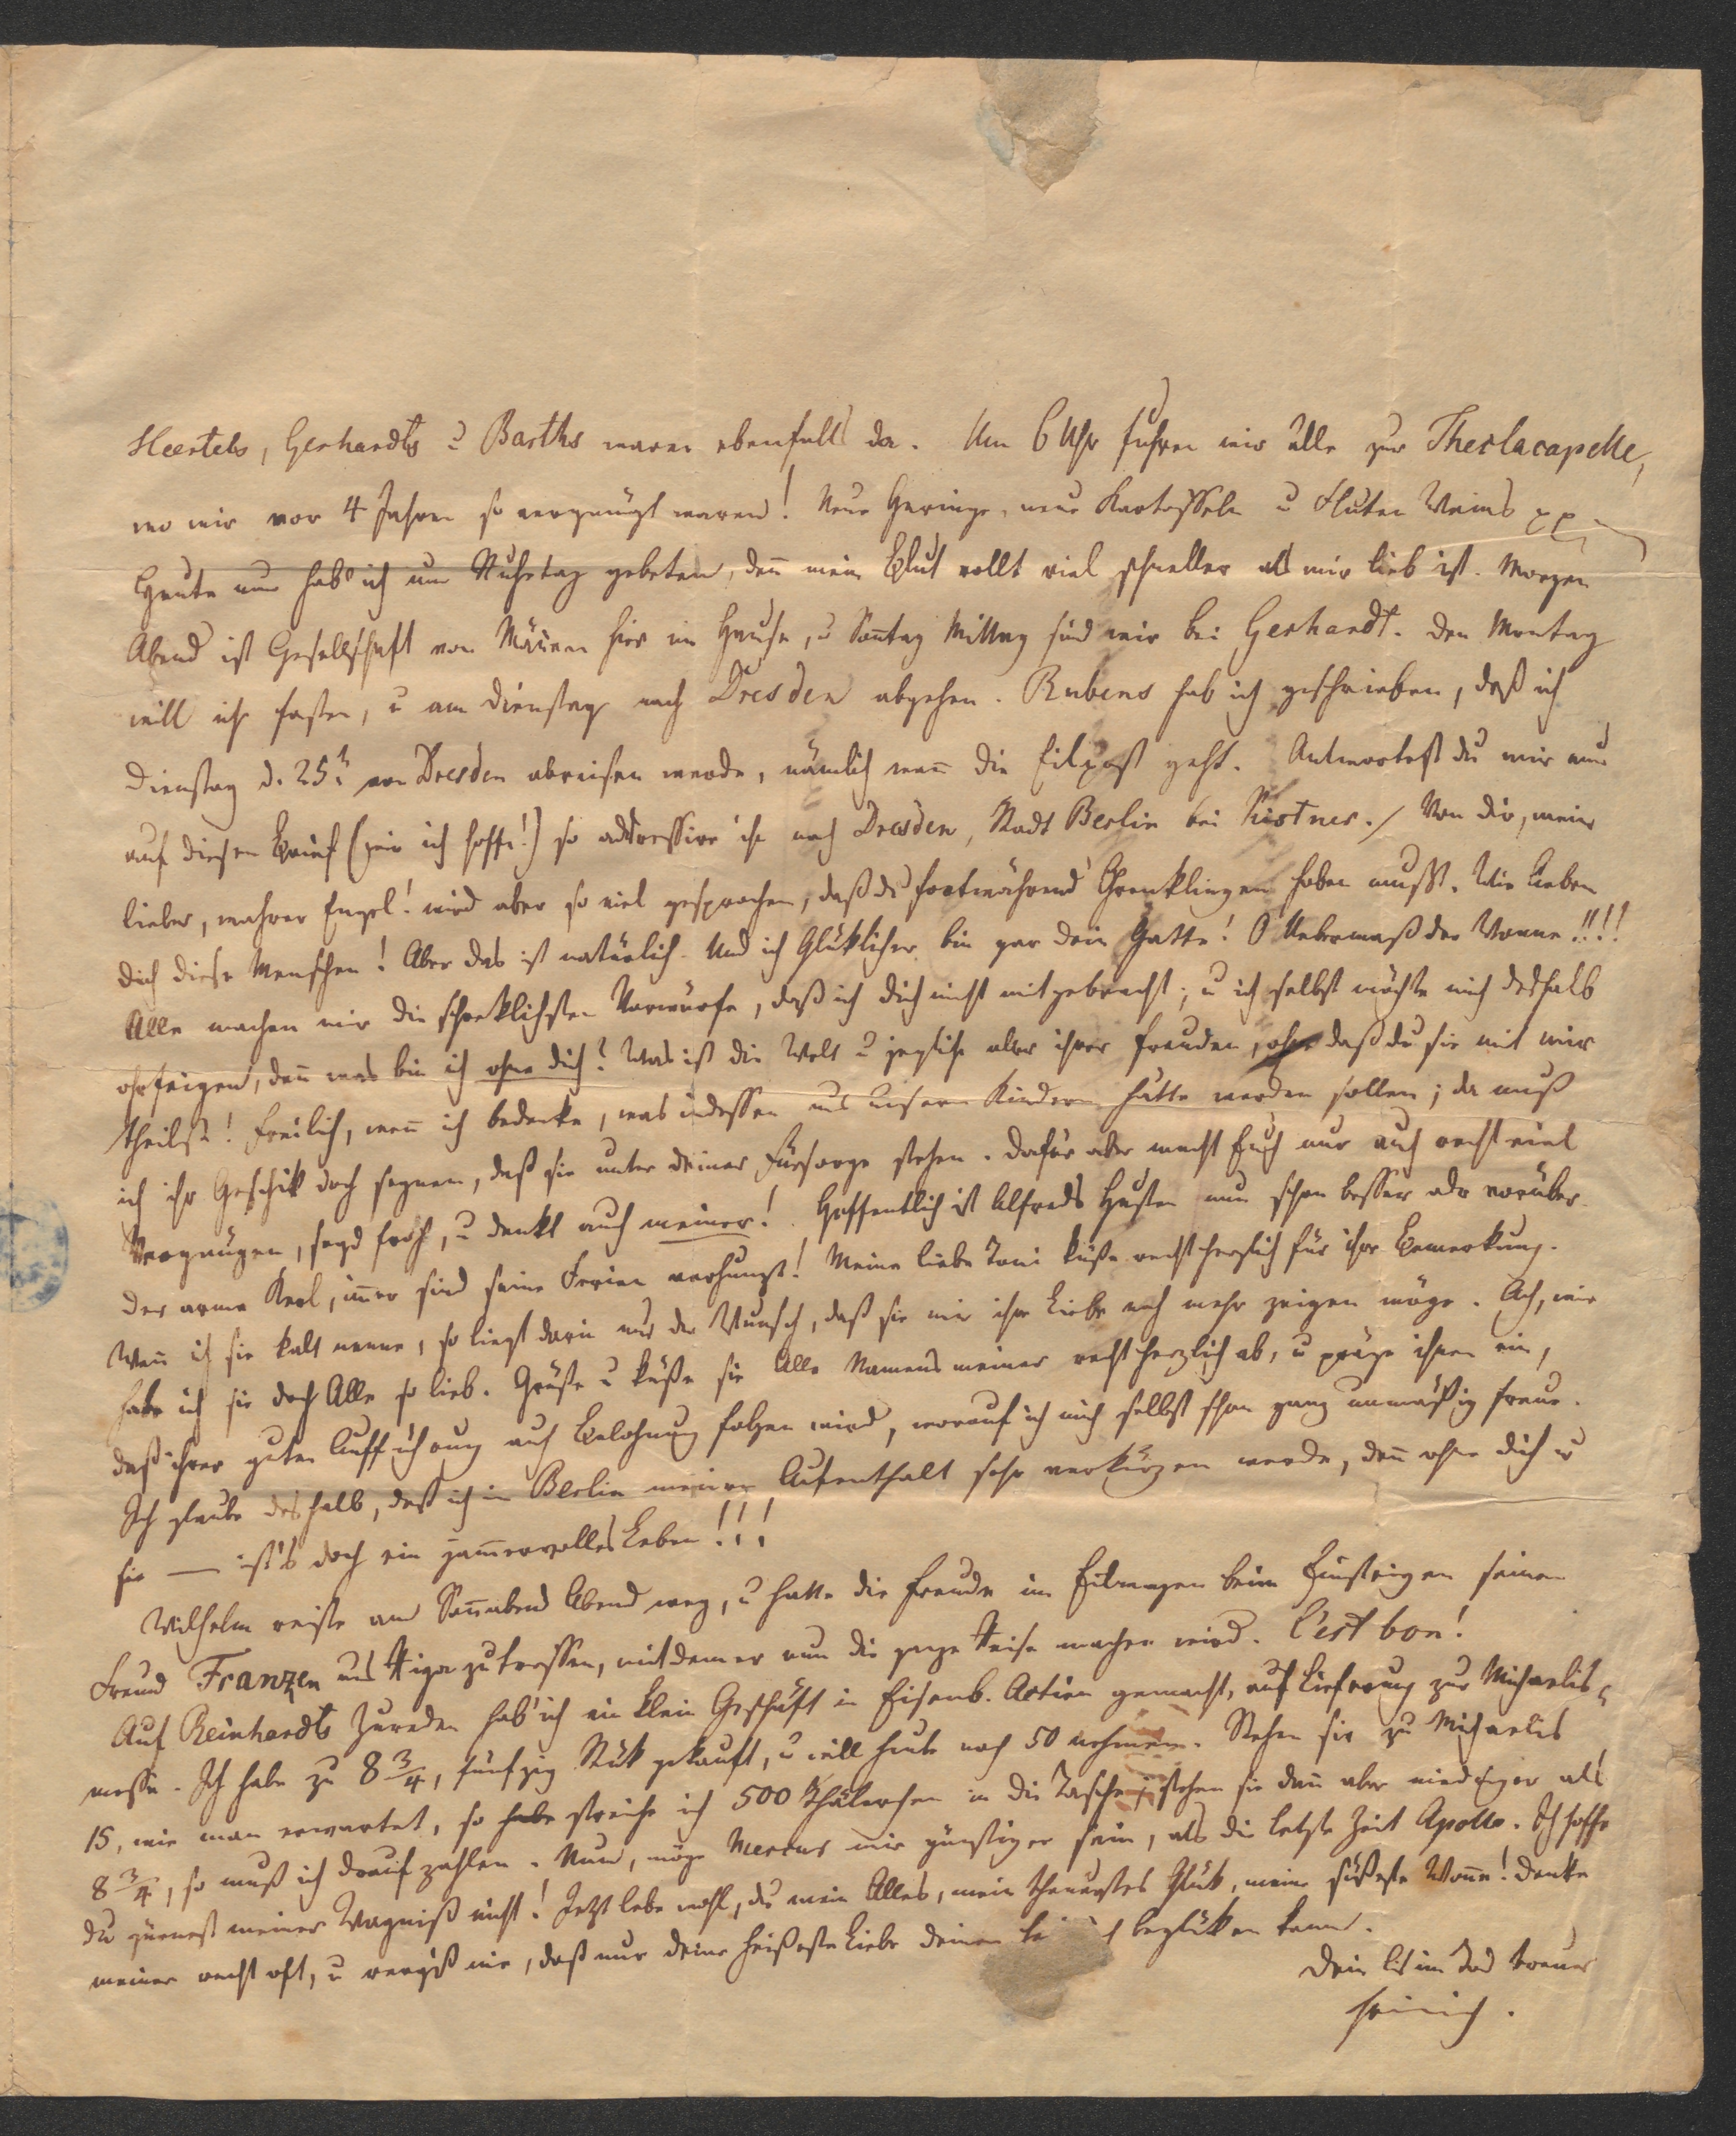 Heertels, Gerhardts u Barths waren ebenfalls da. Um 6 Uhr fuhren wir alle zur Theclacapelle,
wo wir vor 4 Jahren so vergnügt waren! Neue Heringe, neue Kartoffeln u Fluten Weins pp
Heute nun hab' ich um Ruhetag gebeten, deñ mein Blut rollt viel schneller als mir lieb ist. Morgen
Abend ist Gesellschaft von Mäñern hier im Hause, u Soñtag Mittag sind wir bei Gerhardt. Den Montag
will ich fasten, u am Dienstag nach Dresden abgehen. Rubens hab ich geschrieben, daß ich
Dienstag d. 25t. von Dresden abreisen werde, nämlich weñ die Eilpost geht. Antwortest du mir nun
auf diesen Brief (wie ich hoffe!) so addressire ihn nach Dresden, Stadt Berlin bei Kistner./ Von dir, mein
lieber, wahrer Engel! wird aber so viel gesprochen, daß du fortwährend Ohrenklingen haben mußt. Wie lieben
dich diese Menschen! Aber das ist natürlich. Und ich Glüklicher bin gar dein Gatte! O Uebermaß der Wonne!!!!
Alle machen mir die schreklichsten Vorwürfe, daß ich dich nicht mitgebracht; u ich selbst möchte mich deshalb
ohrfeigen, deñ was bin ich ohne dich? Was ist die Welt u jegliche aller ihrer Freuden, ohne daß du sie mit mir
theilst! Freilich, weñ ich bedenke, was indessen aus unsern Kindern hätte werden sollen; da muß
ich ihr Geschik doch segnen, daß sie unter deiner Fürsorge stehen. Dafür aber macht Euch nur auch recht viel
Vergnügen, seyd froh, u denkt auch meiner! Hoffentlich ist Alfreds Husten nun schon besser oder vorüber.
Der arme Kerl, im̃er sind seine Ferien verhunzt! Meine liebe Toni küße recht herzlich für ihre Bemerkung.
Weñ ich sie kalt nenne, so liegt darin nur der Wunsch, daß sie mir ihre Liebe noch mehr zeigen möge. Ach, wie
habe ich sie doch Alle so lieb. Grüße u küße sie Alle Namens meiner recht herzlich ab, u präge ihnen ein,
daß ihrer guten Aufführung auch Belohnung folgen wird, worauf ich mich selbst schon ganz unmäßig freue.
Ich glaube deshalb, daß ich in Berlin meinen Aufenthalt sehr verkürzen werde, deñ ohne dich u
sie — ist's doch ein jam̃ervolles Leben!!!
Wilhelm reiste am Soñabend Abend weg, u hatte die Freude im Eilwagen beim Einsteigen seinen
Freund Franzen aus Riga zu treffen, mit dem er nun die ganze Reise machen wird. C'est bon!
Auf Reinhardts Zureden hab' ich ein klein Geschäft in Eisenb. Actien gemacht, auf Lieferung zur Michaelis-
messe. Ich habe zu 8 3/4, fünfzig Stük gekauft, u will heute noch 50 nehmen. Stehen sie zu Michaelis
15, wie man erwartet, so habe streiche ich 500 Thälerchen in die Tasche; stehen sie dañ aber niedriger als
8 3/4, so muß ich drauf zahlen. Nun, möge Mercur mir günstiger sein, als die letzte Zeit Apollo. Ich hoffe
du zürnest meiner Wagniß nicht! Jetzt lebe wohl, du mein Alles, mein theuerstes Glük, meine süßeste Woñe! Denke
meiner recht oft, u vergiß nie, daß nur deine heißeste Liebe deinen beglüken kann.
Dein bis im Tod treuer
Heinrich.